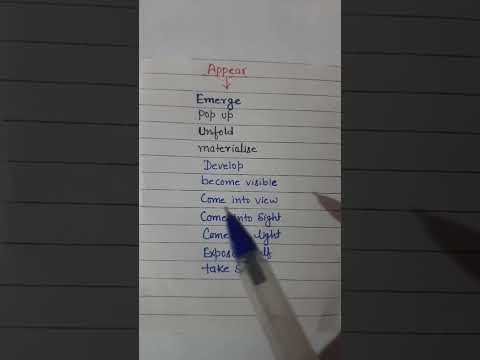 Appear
Emerge
Pop up
Unfold
materialise
Develop
become visible
Come into view
Come into sight
Come light
take